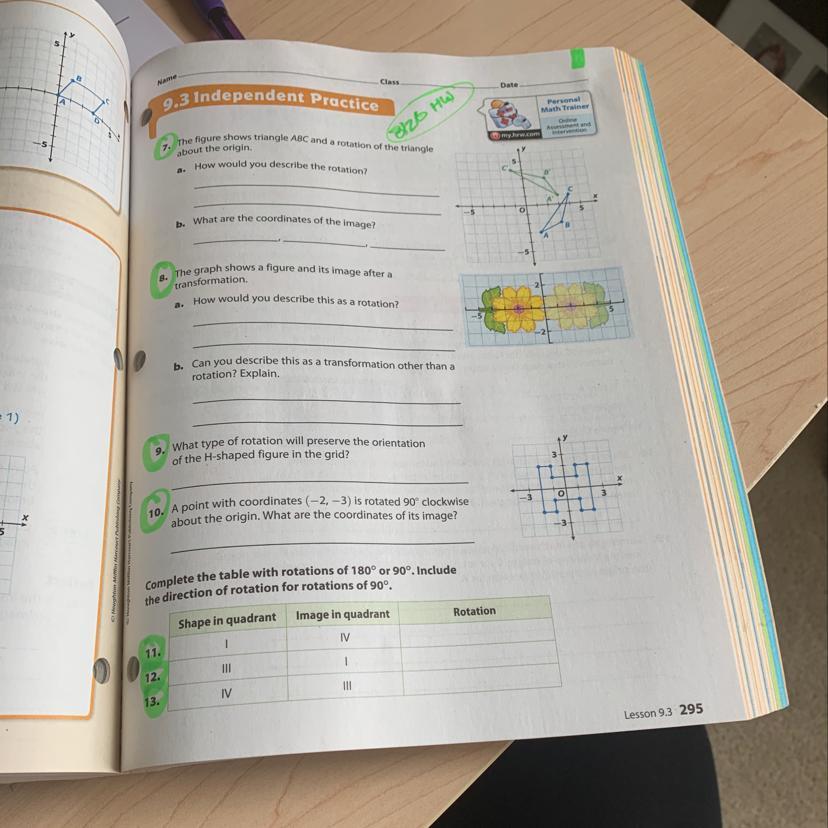 Name
Class
Date
9.3 Independent Practice
8/25 HW
Personal
Math Trainer
Online
Assessment and
Intervention
my.hrw.com
7. The figure shows triangle ABC and a rotation of the triangle
about the origin.
a. How would you describe the rotation?
b. What are the coordinates of the image?
, ,
y
5
C'
B'
A'
C
x
-5
O
5
B
A
-5
8. The graph shows a figure and its image after a
transformation.
a. How would you describe this as a rotation?
b. Can you describe this as a transformation other than a
rotation? Explain.
2
-5
5
-2
9. What type of rotation will preserve the orientation
of the H-shaped figure in the grid?
y
3
x
-3
O
3
-3
10. A point with coordinates (−2, −3) is rotated 90° clockwise
about the origin. What are the coordinates of its image?
Complete the table with rotations of 180° or 90°. Include
the direction of rotation for rotations of 90°.
Shape in quadrant Image in quadrant Rotation
11. I IV
12. III I
13. IV III
Lesson 9.3 295
© Houghton Mifflin Harcourt Publishing Company
y
5
B
C
A
D
-5
5
1)
x
5